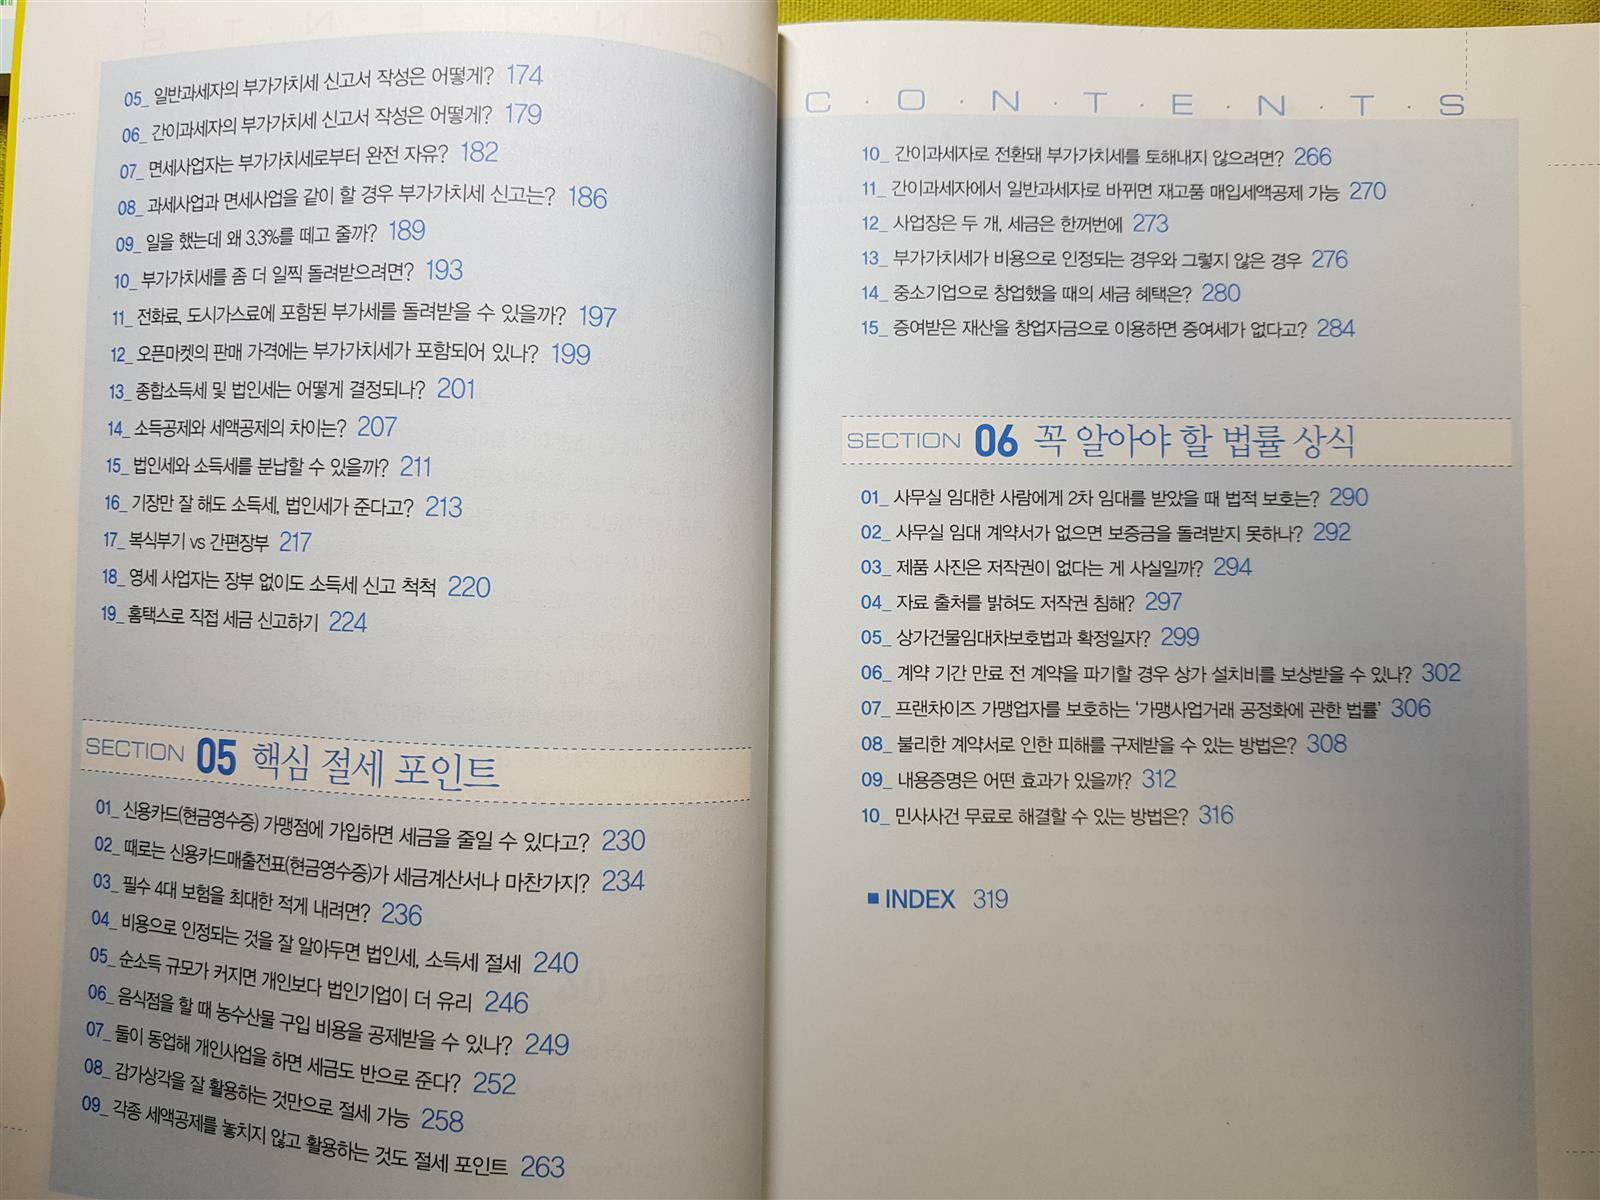 05_ 일반과세자의 부가가치세 신고서 작성은 어떻게? 174
06_ 간이과세자의 부가가치세 신고서 작성은 어떻게? 179
07_ 면세사업자는 부가가치세로부터 완전 자유? 182
08_ 과세사업과 면세사업을 같이 할 경우 부가가치세 신고는? 186
09_ 일을 했는데 왜 3.3%를 떼고 줄까? 189
10_ 부가가치세를 좀 더 일찍 돌려받으려면? 193
11_ 전화료, 도시가스료에 포함된 부가세를 돌려받을 수 있을까? 197
12_ 오픈마켓의 판매 가격에는 부가가치세가 포함되어 있나? 199
13_ 종합소득세 및 법인세는 어떻게 결정되나? 201
14_ 소득공제와 세액공제의 차이는? 207
15_ 법인세와 소득세를 분납할 수 있을까? 211
16_ 기장만 잘 해도 소득세, 법인세가 준다고? 213
17_ 복식부기 vs 간편장부 217
18_ 영세 사업자는 장부 없이도 소득세 신고 척척 220
19_ 홈택스로 직접 세금 신고하기 224
SECTION 05 핵심 절세 포인트
01_ 신용카드(현금영수증) 가맹점에 가입하면 세금을 줄일 수 있다고? 230
02_ 때로는 신용카드매출전표(현금영수증)가 세금계산서나 마찬가지? 234
03_ 필수 4대 보험을 최대한 적게 내려면? 236
04_ 비용으로 인정되는 것을 잘 알아두면 법인세, 소득세 절세 240
05_ 순소득 규모가 커지면 개인보다 법인기업이 더 유리 246
06_ 음식점을 할 때 농수산물 구입 비용을 공제받을 수 있나? 249
07_ 둘이 동업해 개인사업을 하면 세금도 반으로 준다? 252
08_ 감가상각을 잘 활용하는 것만으로 절세 가능 258
09_ 각종 세액공제를 놓치지 않고 활용하는 것도 절세 포인트 263
C·O·N·T·E·N·T·S
10_ 간이과세자로 전환돼 부가가치세를 토해내지 않으려면? 266
11_ 간이과세자에서 일반과세자로 바뀌면 재고품 매입세액공제 가능 270
12_ 사업장은 두 개, 세금은 한꺼번에 273
13_ 부가가치세가 비용으로 인정되는 경우와 그렇지 않은 경우 276
14_ 중소기업으로 창업했을 때의 세금 혜택은? 280
15_ 증여받은 재산을 창업자금으로 이용하면 증여세가 없다고? 284
SECTION 06 꼭 알아야 할 법률 상식
01_ 사무실 임대한 사람에게 2차 임대를 받았을 때 법적 보호는? 290
02_ 사무실 임대 계약서가 없으면 보증금을 돌려받지 못하나? 292
03_ 제품 사진은 저작권이 없다는 게 사실일까? 294
04_ 자료 출처를 밝혀도 저작권 침해? 297
05_ 상가건물임대차보호법과 확정일자? 299
06_ 계약 기간 만료 전 계약을 파기할 경우 상가 설치비를 보상받을 수 있나? 302
07_ 프랜차이즈 가맹업자를 보호하는 '가맹사업거래 공정화에 관한 법률' 306
08_ 불리한 계약서로 인한 피해를 구제받을 수 있는 방법은? 308
09_ 내용증명은 어떤 효과가 있을까? 312
10_ 민사사건 무료로 해결할 수 있는 방법은? 316
■ INDEX 319